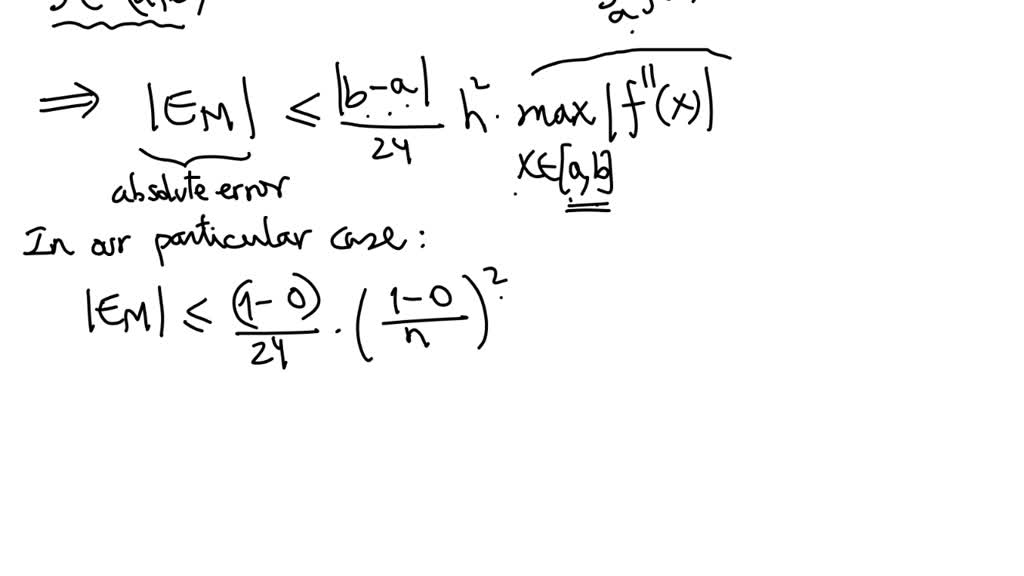 ⟹ |E_M| ≤ |b-a|/24 h². max |f''(x)|
x∈[a,b]
absolute error
In our particular case:
|E_M| ≤ (1-0)/24 · ((1-0)/n)²